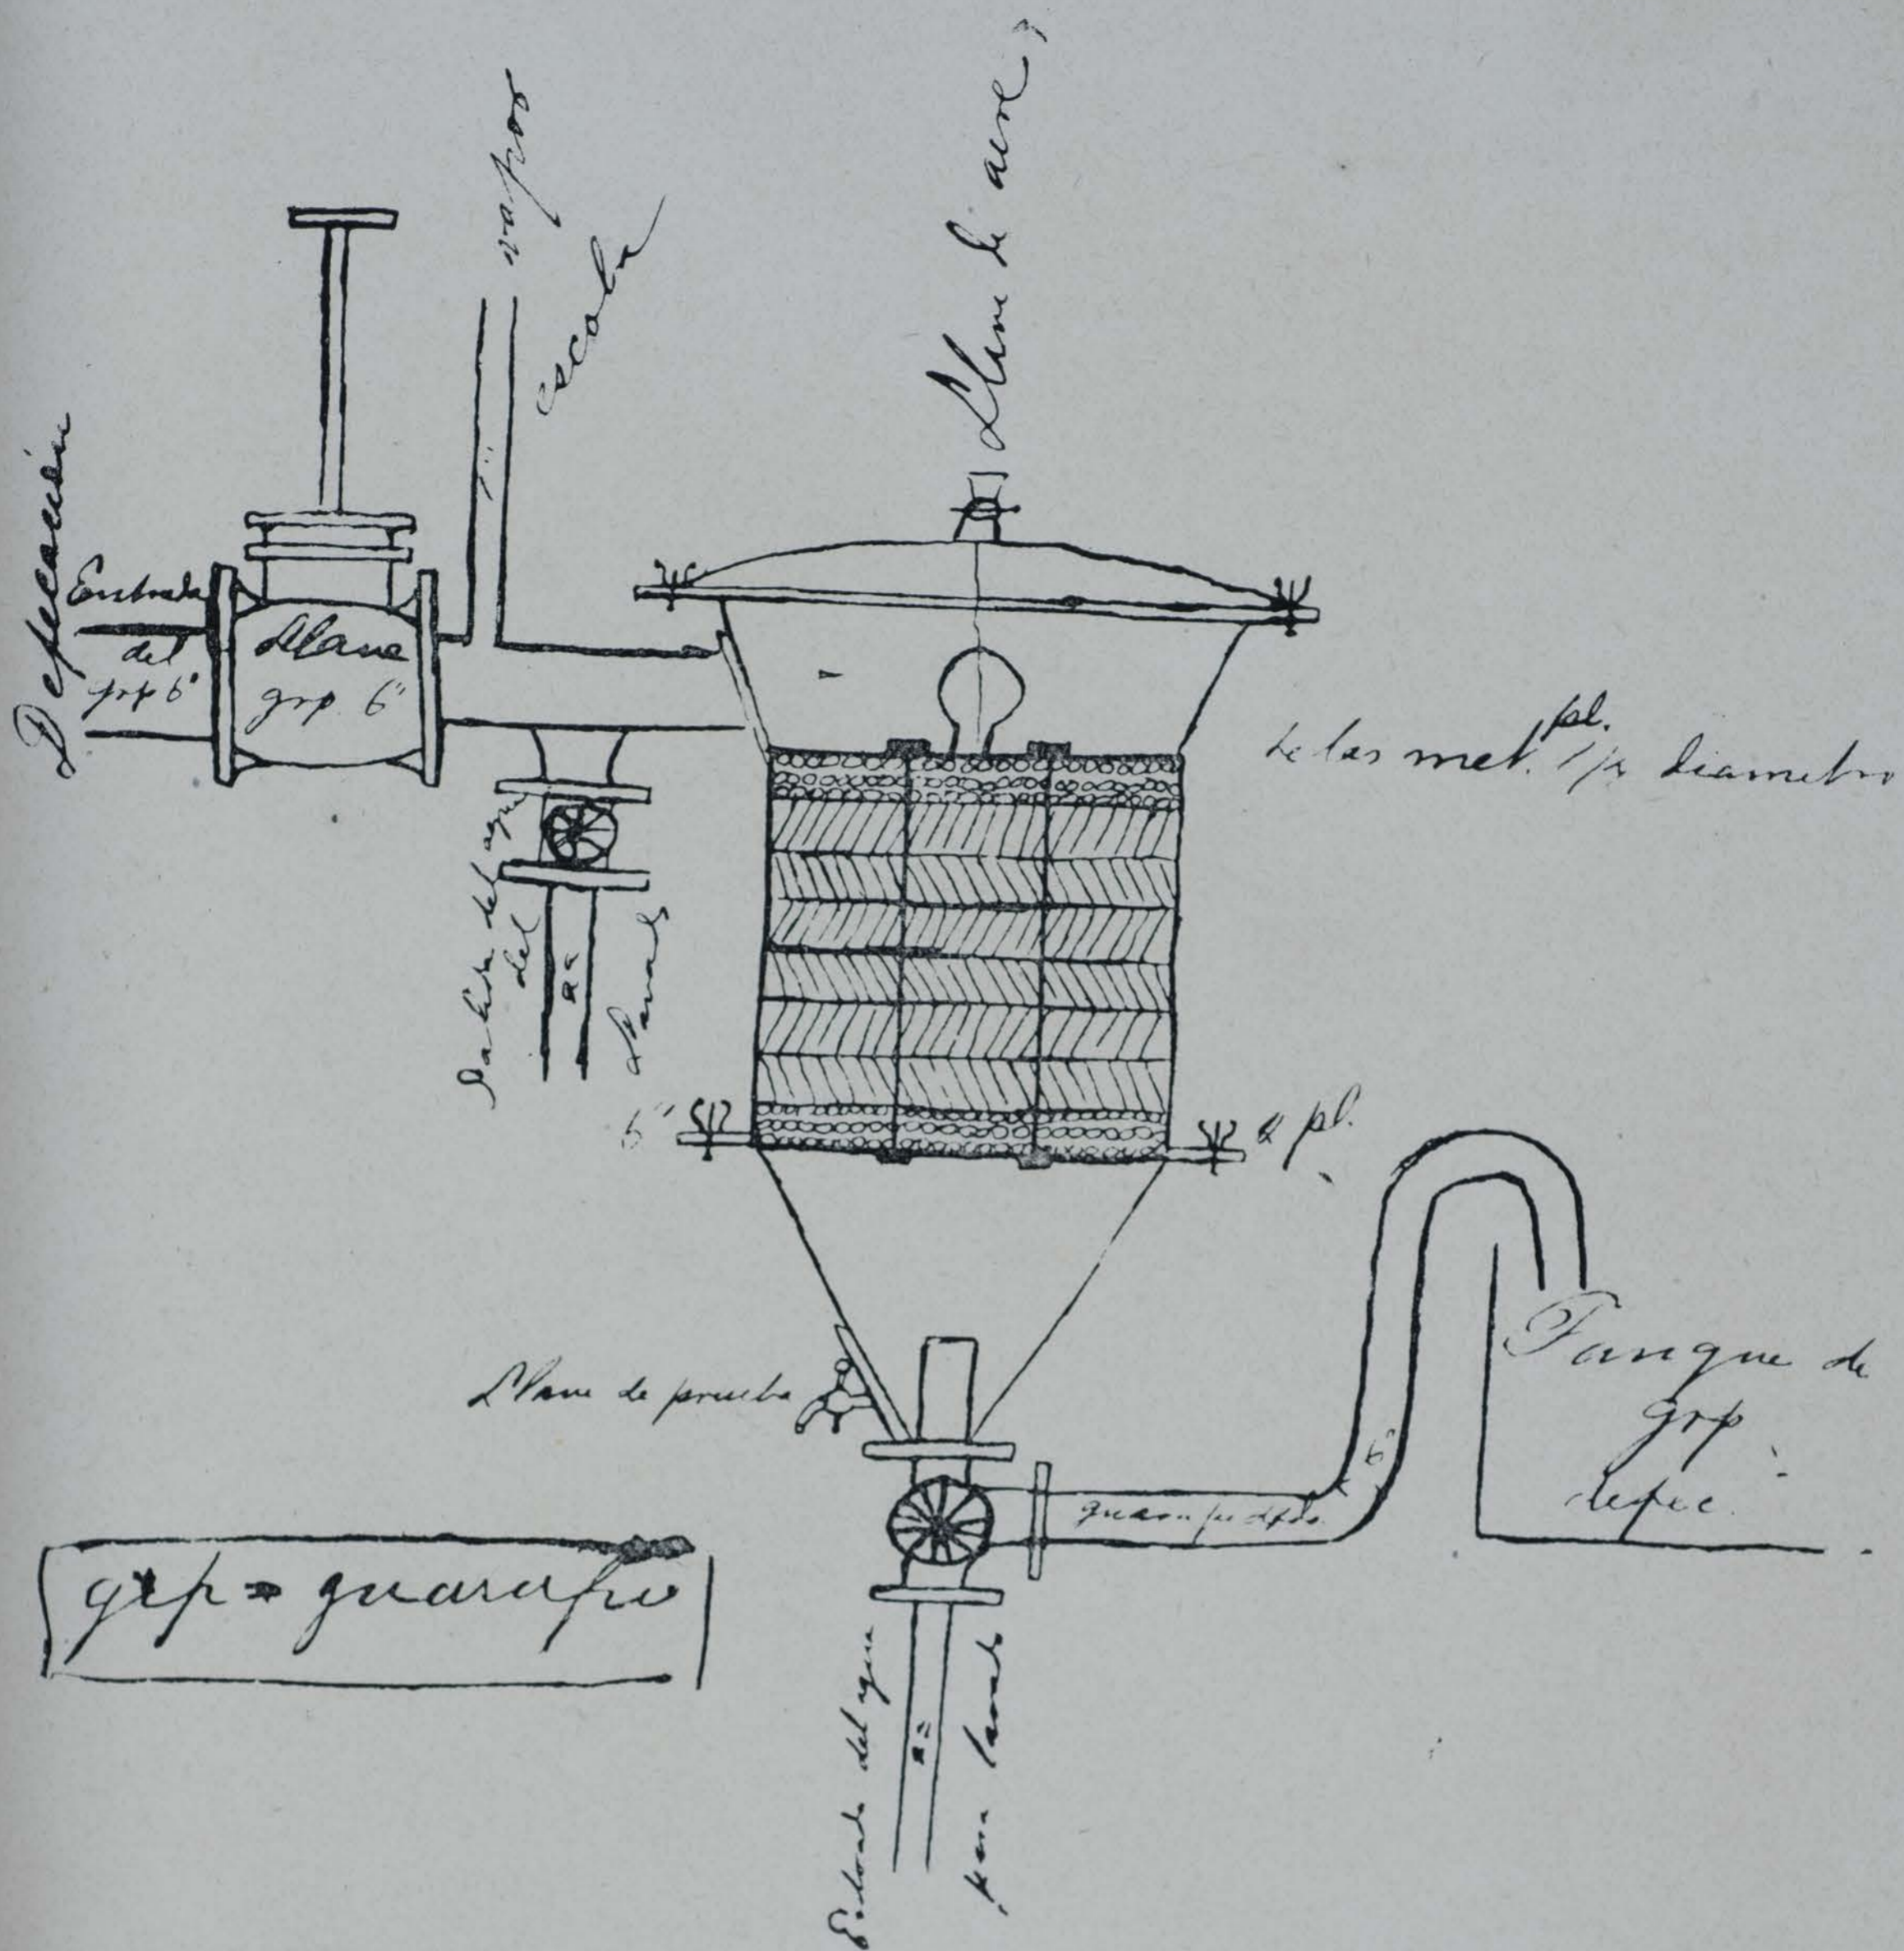 Defecación
Entrada
del
grp 6"
Llave
grp. 6"
vapor
escala
1"
Llave de aire
telas met. 1/2 diametro
pl.
Salida del agua
del
2"
Lavado
6"
2 pl.
Llave de prueba
guarapo
6"
Tanque de
grp
defec.
grp = guarapo
Entrada del agua
2"
para lavado